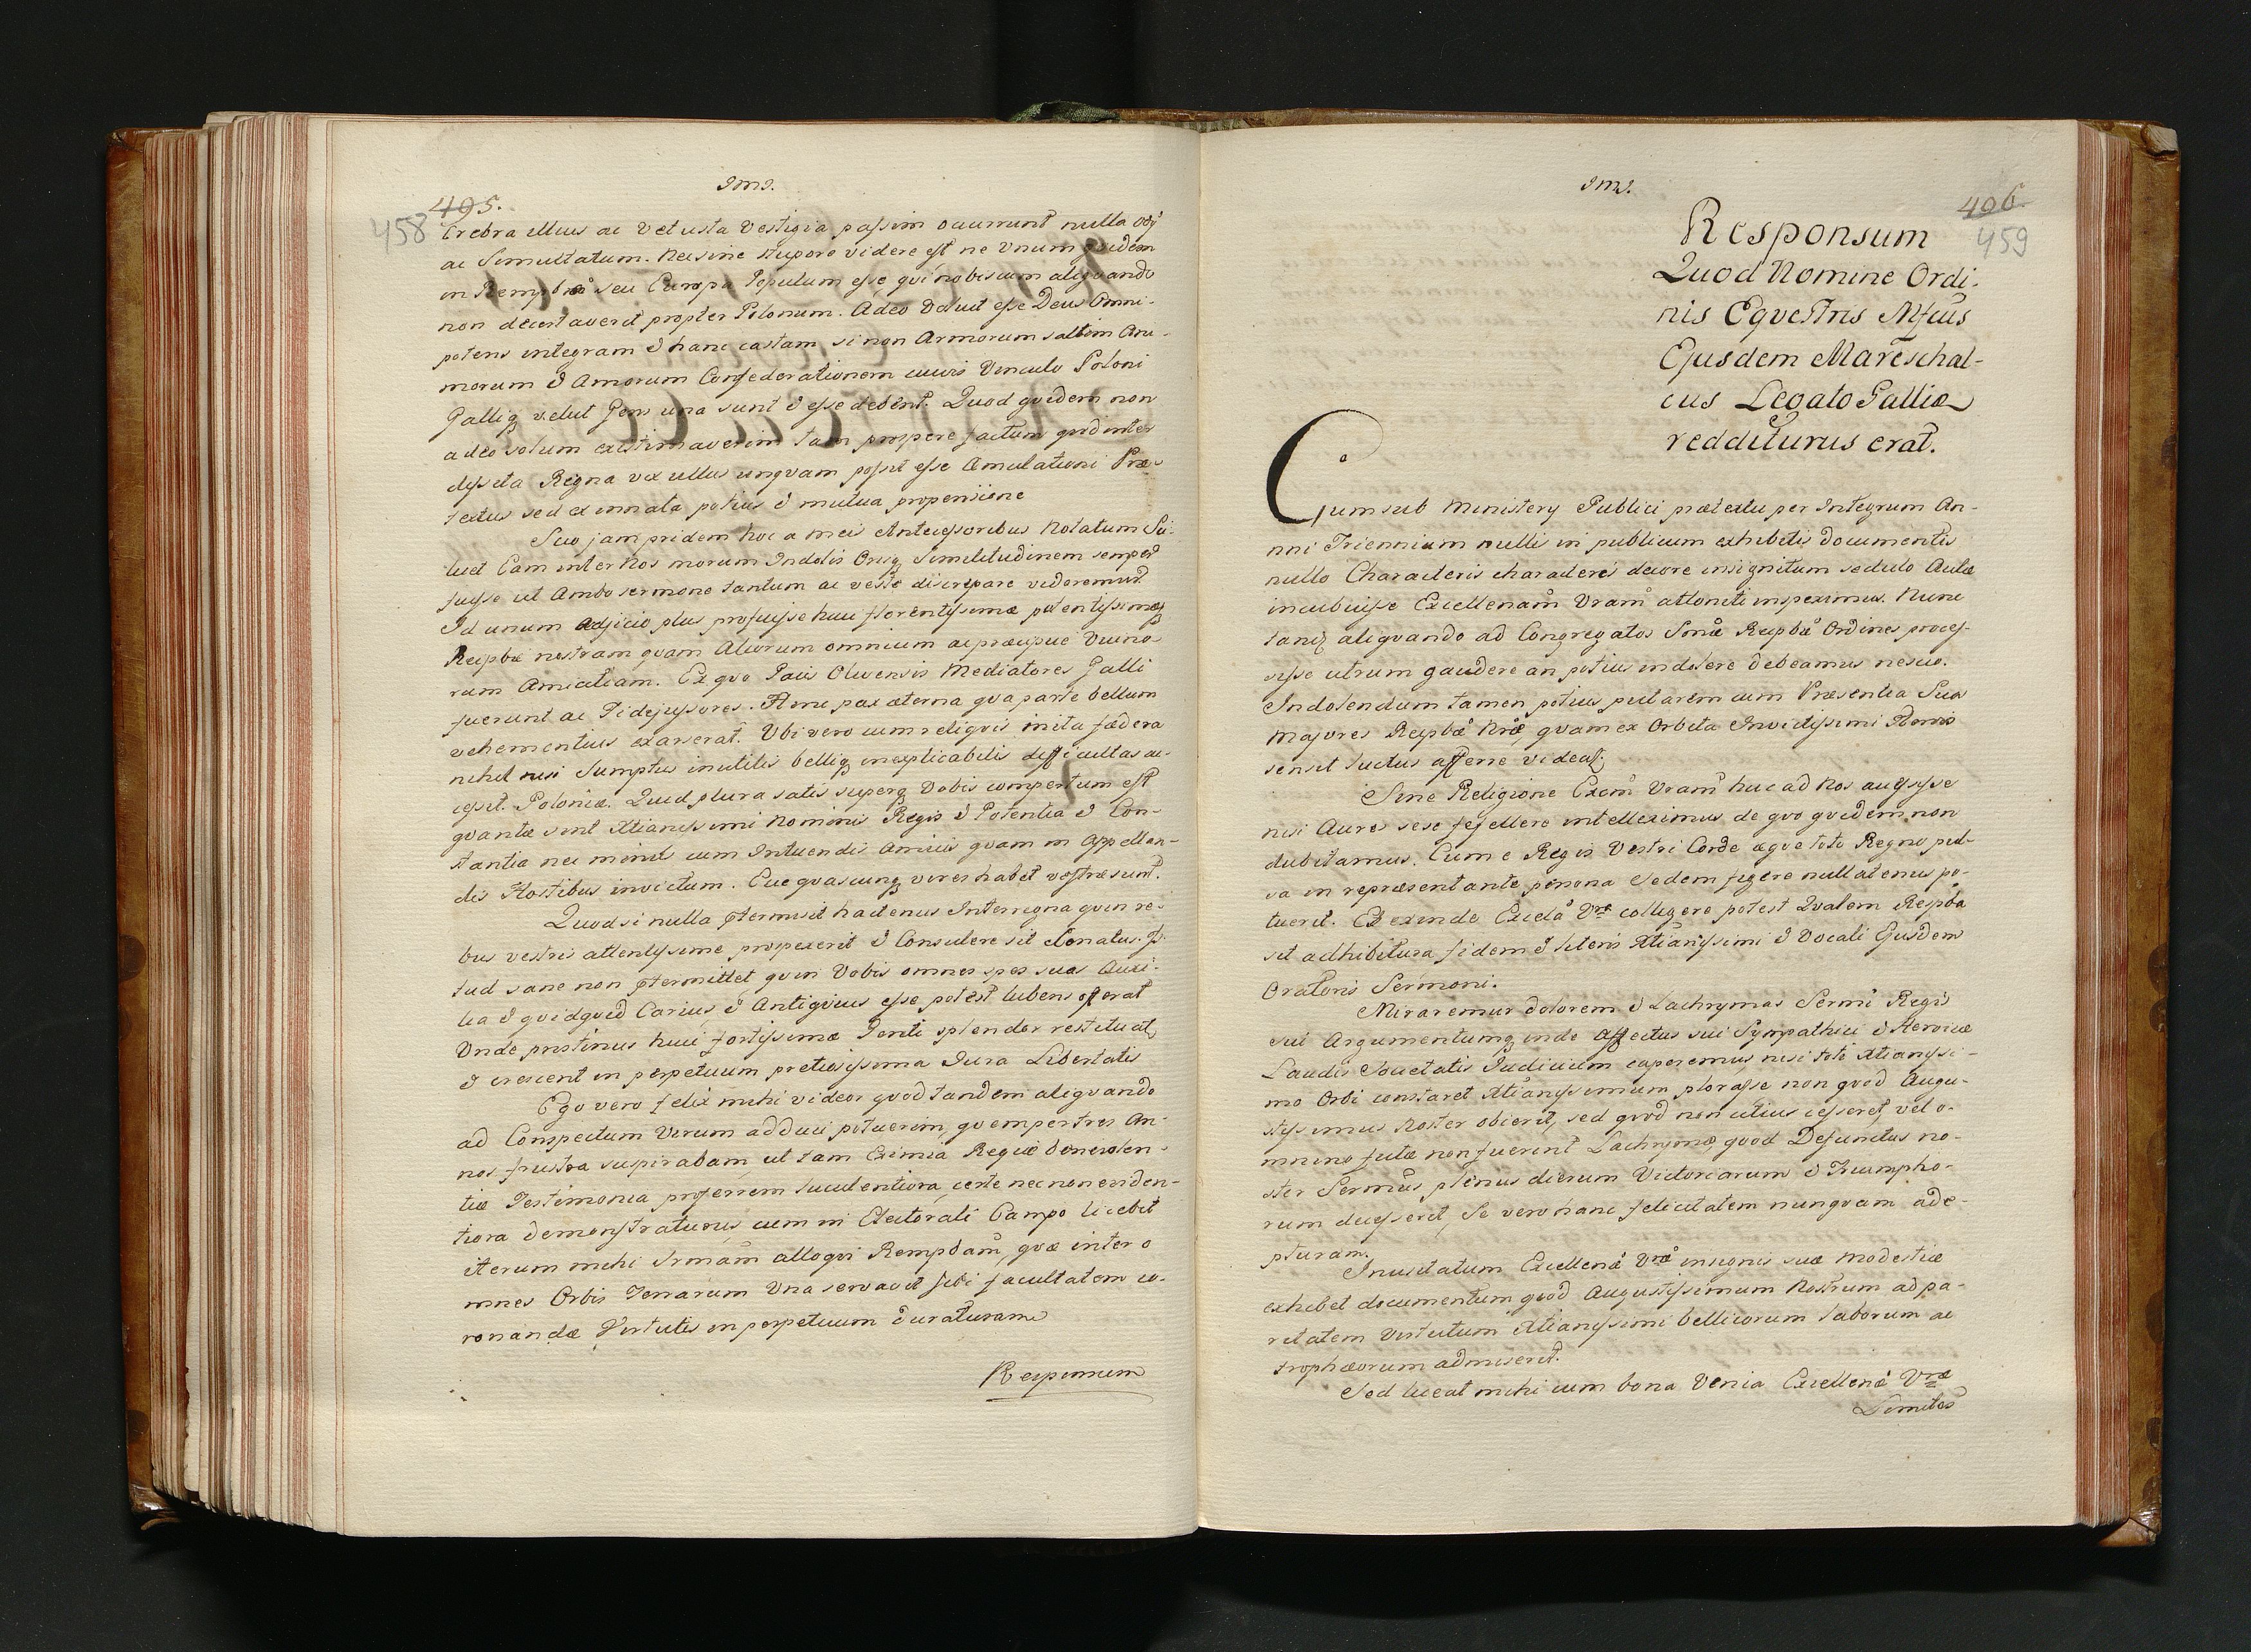 Jmj.
495.
458
Crebra illius ac Vetusta Vestigia passim occurrunt nulla odÿ
ac Simultatum. Nec sine stupore videre est ne Vnum quidem
in seu Europa Populum esse qvi nobiscum aliqvando
non decertaverit propter Polonum. Adeo Voluit esse Deus Omni-
potens integram & hanc castam si non Armorum saltem Ani-
morum & Amorum Confederationem cuius Vinculo Poloni
Galliq velut Gens una sunt & esse debent. Quod qvidem non
adeo solum existimaverim tam prospere factum qvod inter
dissita Regna vix ullus unqvam possit esse Æmulationi Præ-
textus sed ex innata potius & mutua propensione
Suo jam pridem hoc a meis Antecessoribus Notatum Sci-
licet Eam inter Nos morum Indolis Orisq Similitudinem semper
fuisse ut Ambo sermone tantum ac veste discrepare videremur.
Id unum adjicio plus profuisse huic florentissimæ potentissimæq
Reipbæ nostram qvam Aliorum omnium ac præcipue Vicino-
rum Amicitiam. Ex qvo Pacis Olivensis Mediatores Galli
fuerunt ac Fidejussores. Hinc pax æterna qva parte bellum
vehementius exarserat. Vbi vero cum reliqvis inita fædera
nihil nisi Sumptus inutilis belliq inexplicabilis difficultas ac-
cessit Poloniæ. Quid plura satis superq Vobis compertum est
qvantæ sint Xtianissimi Nominis Regis & Potentia & Con-
stantia nec minus cum Intuendis Amicis qvam in Appellan-
dis Hostibus invictum. Eæ qvascunq vires habet vestræ sunt.
Quod si nulla ptermisit hactenus Interregna qvin re-
bus vestris attentissime prospexerit & Consulere sit Conatus. Is-
tud sane non ptermittet qvin Vobis omnes spes suas Auxi-
lia & qvidqvid Carius & Antiqvius esse potest lubens offerat
Vnde pristinus huic fortissimæ Genti splendor restituat
& crescent in perpetuum pretiosissima Iura Libertatis
Ego vero felix mihi videor qvod tandem aliqvando
ad Conspectum Virum adduci potuerim, qvem per tres An-
nos frustra suspirabam, ut tam Eximia Regiæ benevolen-
tiæ Testimonia proferrem luculentiora certe nec non eviden-
tiora Demonstraturus, cum in Electorali Campo licebit
iterum mihi Srmam alloqvi Rempbam, qvæ inter o-
mnes Orbis Terrarum Vna servavit sibi facultatem co-
ronandæ Virtutis in perpetuum duraturam
Responsum
Jmj.
496.
459
Responsum
Quod Nomine Ordi-
nis Eqvestris Mfcus
Ejusdem Mareschal-
cus Legato Galliæ
redditurus erat.
Cum sub Ministerÿ Publici prætextu per Integrum An-
nni Triennium nullis in publicum exhibitis Documentis
nullo Characteris characteris decore insignitum sedulo Aulæ
incubuisse Excellenam Vram attoniti inspeximus. Nunc
tandz aliqvando ad Congregatos Smæ Reipbæ Ordines proces-
sisse utrum gaudere an potius indolere debeamus nescio.
Indolendum tamen potius putarem cum Præsentia Sua
Majores Reipbæ Nræ, qvam ex Orbita Invictissimi
sensit luctus afferre videat.
Sine Religione Exam Vram huc ad Nos accessisse
nisi Aures sese fefellere intelleximus de qvo qvidem non
dubitamus. Cum e Regis Vestri Corde æqve toto Regno pul-
sa in repræsentante persona Sedem figere nullatenus po-
tuerit. Et exinde Excla Vra colligere potest Qvalem Respba
sit adhibitura fidem & literis Xtianissimi & Vocali Ejusdem
Oratoris Sermoni.
Miraremur dolorem & Lachrymas Sermi Regis
sui Argumentumq inde Affectus sui Sympathici & Heroicæ
Laudis Societatis Iudicium caperemus nisi toti Xtianissi-
mo Orbi constaret Xtianissimum plorasse non qvod Augu-
stissimus Noster obierit, sed qvod non citius cesseret, vel o-
mnino fictæ non fuerint Lachrymæ, qvod Defunctus no-
ster Sermus plenus dierum Victoriarum & Triumpho-
rum discesserit, Se vero hanc felicitatem nunqvam ade-
pturam.
Inusitatum Excellena Vra insignis suæ modestiæ
exhibet documentum qvod Augustissimum Nostrum ad pa-
ritatem Virtutum Xtianissimi bellicorum laborum ac
trophæorum admiserit.
Sed liceat mihi cum bona Venia Excellenæ Vræ
Limites